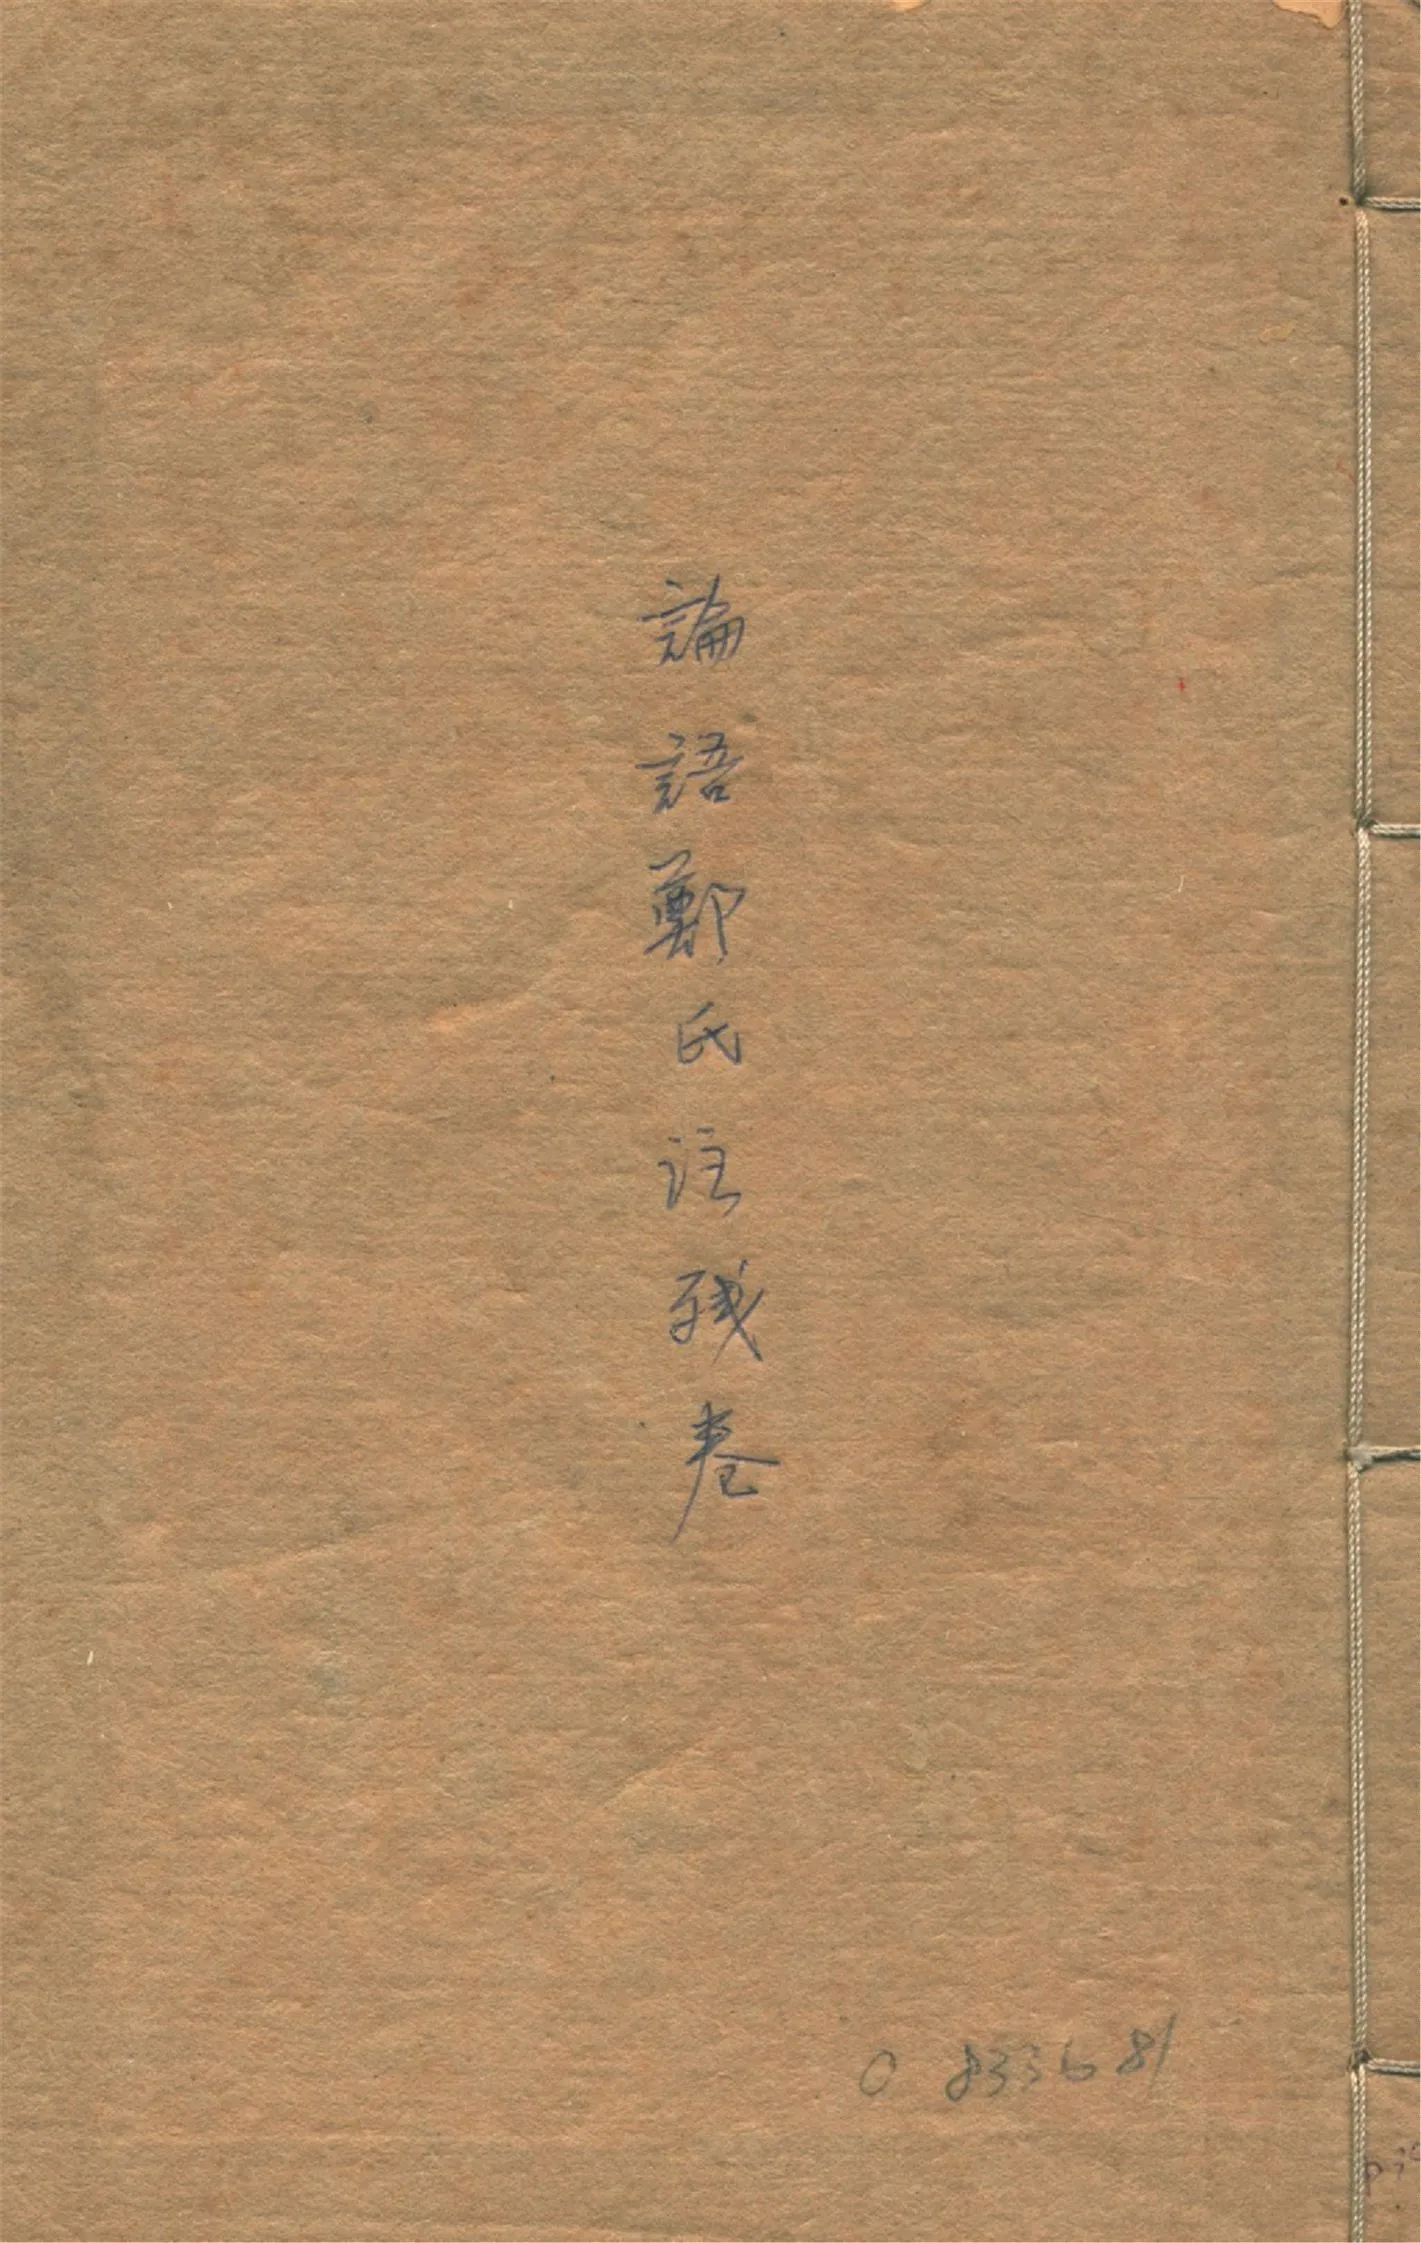 論語鄭氏注残卷
0 833681